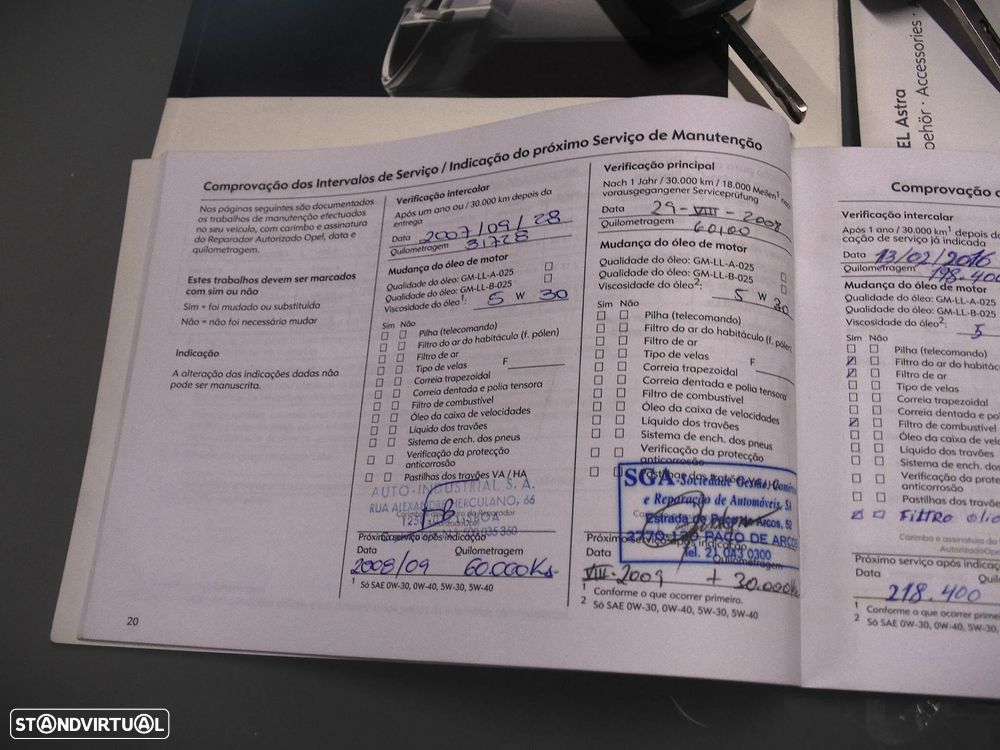 EL Astra
behör · Accessories ·
Comprovação dos Intervalos de Serviço / Indicação do próximo Serviço de Manutenção
Nas páginas seguintes são documentados
os trabalhos de manutenção efectuados
no seu veículo, com carimbo e assinatura
do Reparador Autorizado Opel, data e
quilometragem.
Estes trabalhos devem ser marcados
com sim ou não
Sim = foi mudado ou substituído
Não = não foi necessário mudar
Indicação
A alteração das indicações dadas não
pode ser manuscrita.
20
Verificação intercalar
Após um ano ou / 30.000 km depois da
entrega
Data 2007/09/28
Quilometragem 31728
Mudança do óleo de motor
Qualidade do óleo: GM-LL-A-025
Qualidade do óleo: GM-LL-B-025
Viscosidade do óleo1: 5 W 30
Sim Não
Pilha (telecomando)
Filtro do ar do habitáculo (f. pólen)
Filtro de ar
Tipo de velas F
Correia trapezoidal
Correia dentada e polia tensora
Filtro de combustível
Óleo da caixa de velocidades
Líquido dos travões
Sistema de ench. dos pneus
Verificação da protecção
anticorrosão
Pastilhas dos travões VA / HA
AUTO-INDUSTRIAL S.A.
RUA ALEXANDRE HERCULANO, 66
Próximo serviço após indicação
Data Quilometragem
2008/09 60.000Ks
1 Só SAE 0W-30, 0W-40, 5W-30, 5W-40
Verificação principal
Nach 1 Jahr / 30.000 km / 18.000 Meilen1 nach
vorausgegangener Serviceprüfung
Data 29-VIII-2008
Quilometragem 60100
Mudança do óleo de motor
Qualidade do óleo: GM-LL-A-025
Qualidade do óleo: GM-LL-B-025
Viscosidade do óleo2: 5 W 30
Sim Não
Pilha (telecomando)
Filtro do ar do habitáculo (f. pólen)
Filtro de ar
Tipo de velas F
Correia trapezoidal
Correia dentada e polia tensora
Filtro de combustível
Óleo da caixa de velocidades
Líquido dos travões
Sistema de ench. dos pneus
Verificação da protecção
anticorrosão
SGA - Sociedade Gestão
e Reparação de Automóveis, SA
Estrada de Paço de Arcos, 52
2770-130 PAÇO DE ARCOS
Tel. 21 043 0300
Próximo serviço após indicação
Data Quilometragem
VIII-2009 + 30.000Ks
1 Conforme o que ocorrer primeiro.
2 Só SAE 0W-30, 0W-40, 5W-30, 5W-40
Comprovação d
Verificação intercalar
Após 1 ano / 30.000 km1 depois da
cação de serviço já indicada
Data 13/02/2016
Quilometragem 198.400
Mudança do óleo de motor
Qualidade do óleo: GM-LL-A-025
Qualidade do óleo: GM-LL-B-025
Viscosidade do óleo2: 5
Sim Não
Pilha (telecomando)
Filtro do ar do habitác
Filtro de ar
Tipo de velas
Correia trapezoidal
Correia dentada e po
Filtro de combustível
Óleo da caixa de velo
Líquido dos travões
Sistema de ench. dos
Verificação da prote
anticorrosão
Pastilhas dos travões
Filtro oleo
Carimbo e assinatura do
Autorizado Opel
Próximo serviço após indicação
Data Quil
218.400
1 Conforme o que ocorrer primeiro
2 Só SAE 0W-30, 0W-40, 5W-30,
STANDVIRTUAL